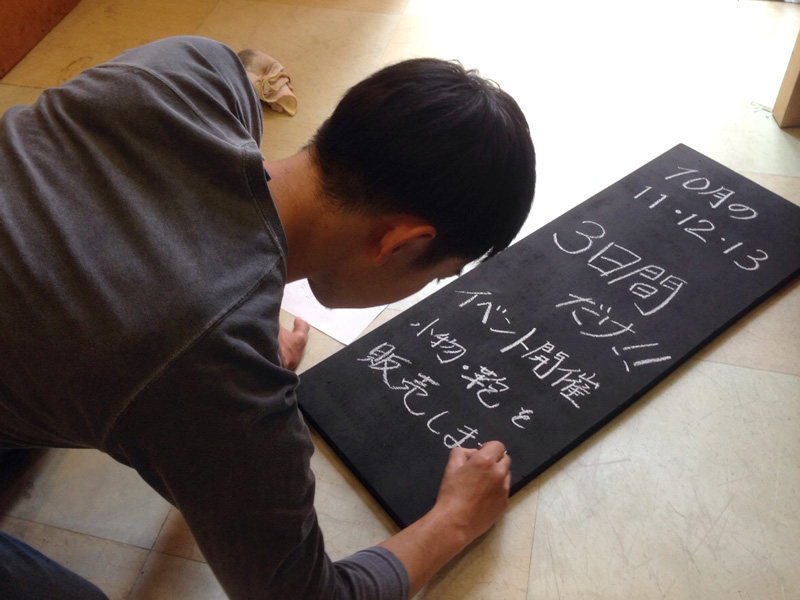 10月の
11・12・13
3日間
だけ!!
イベント開催
小物・鞄を
販売しま